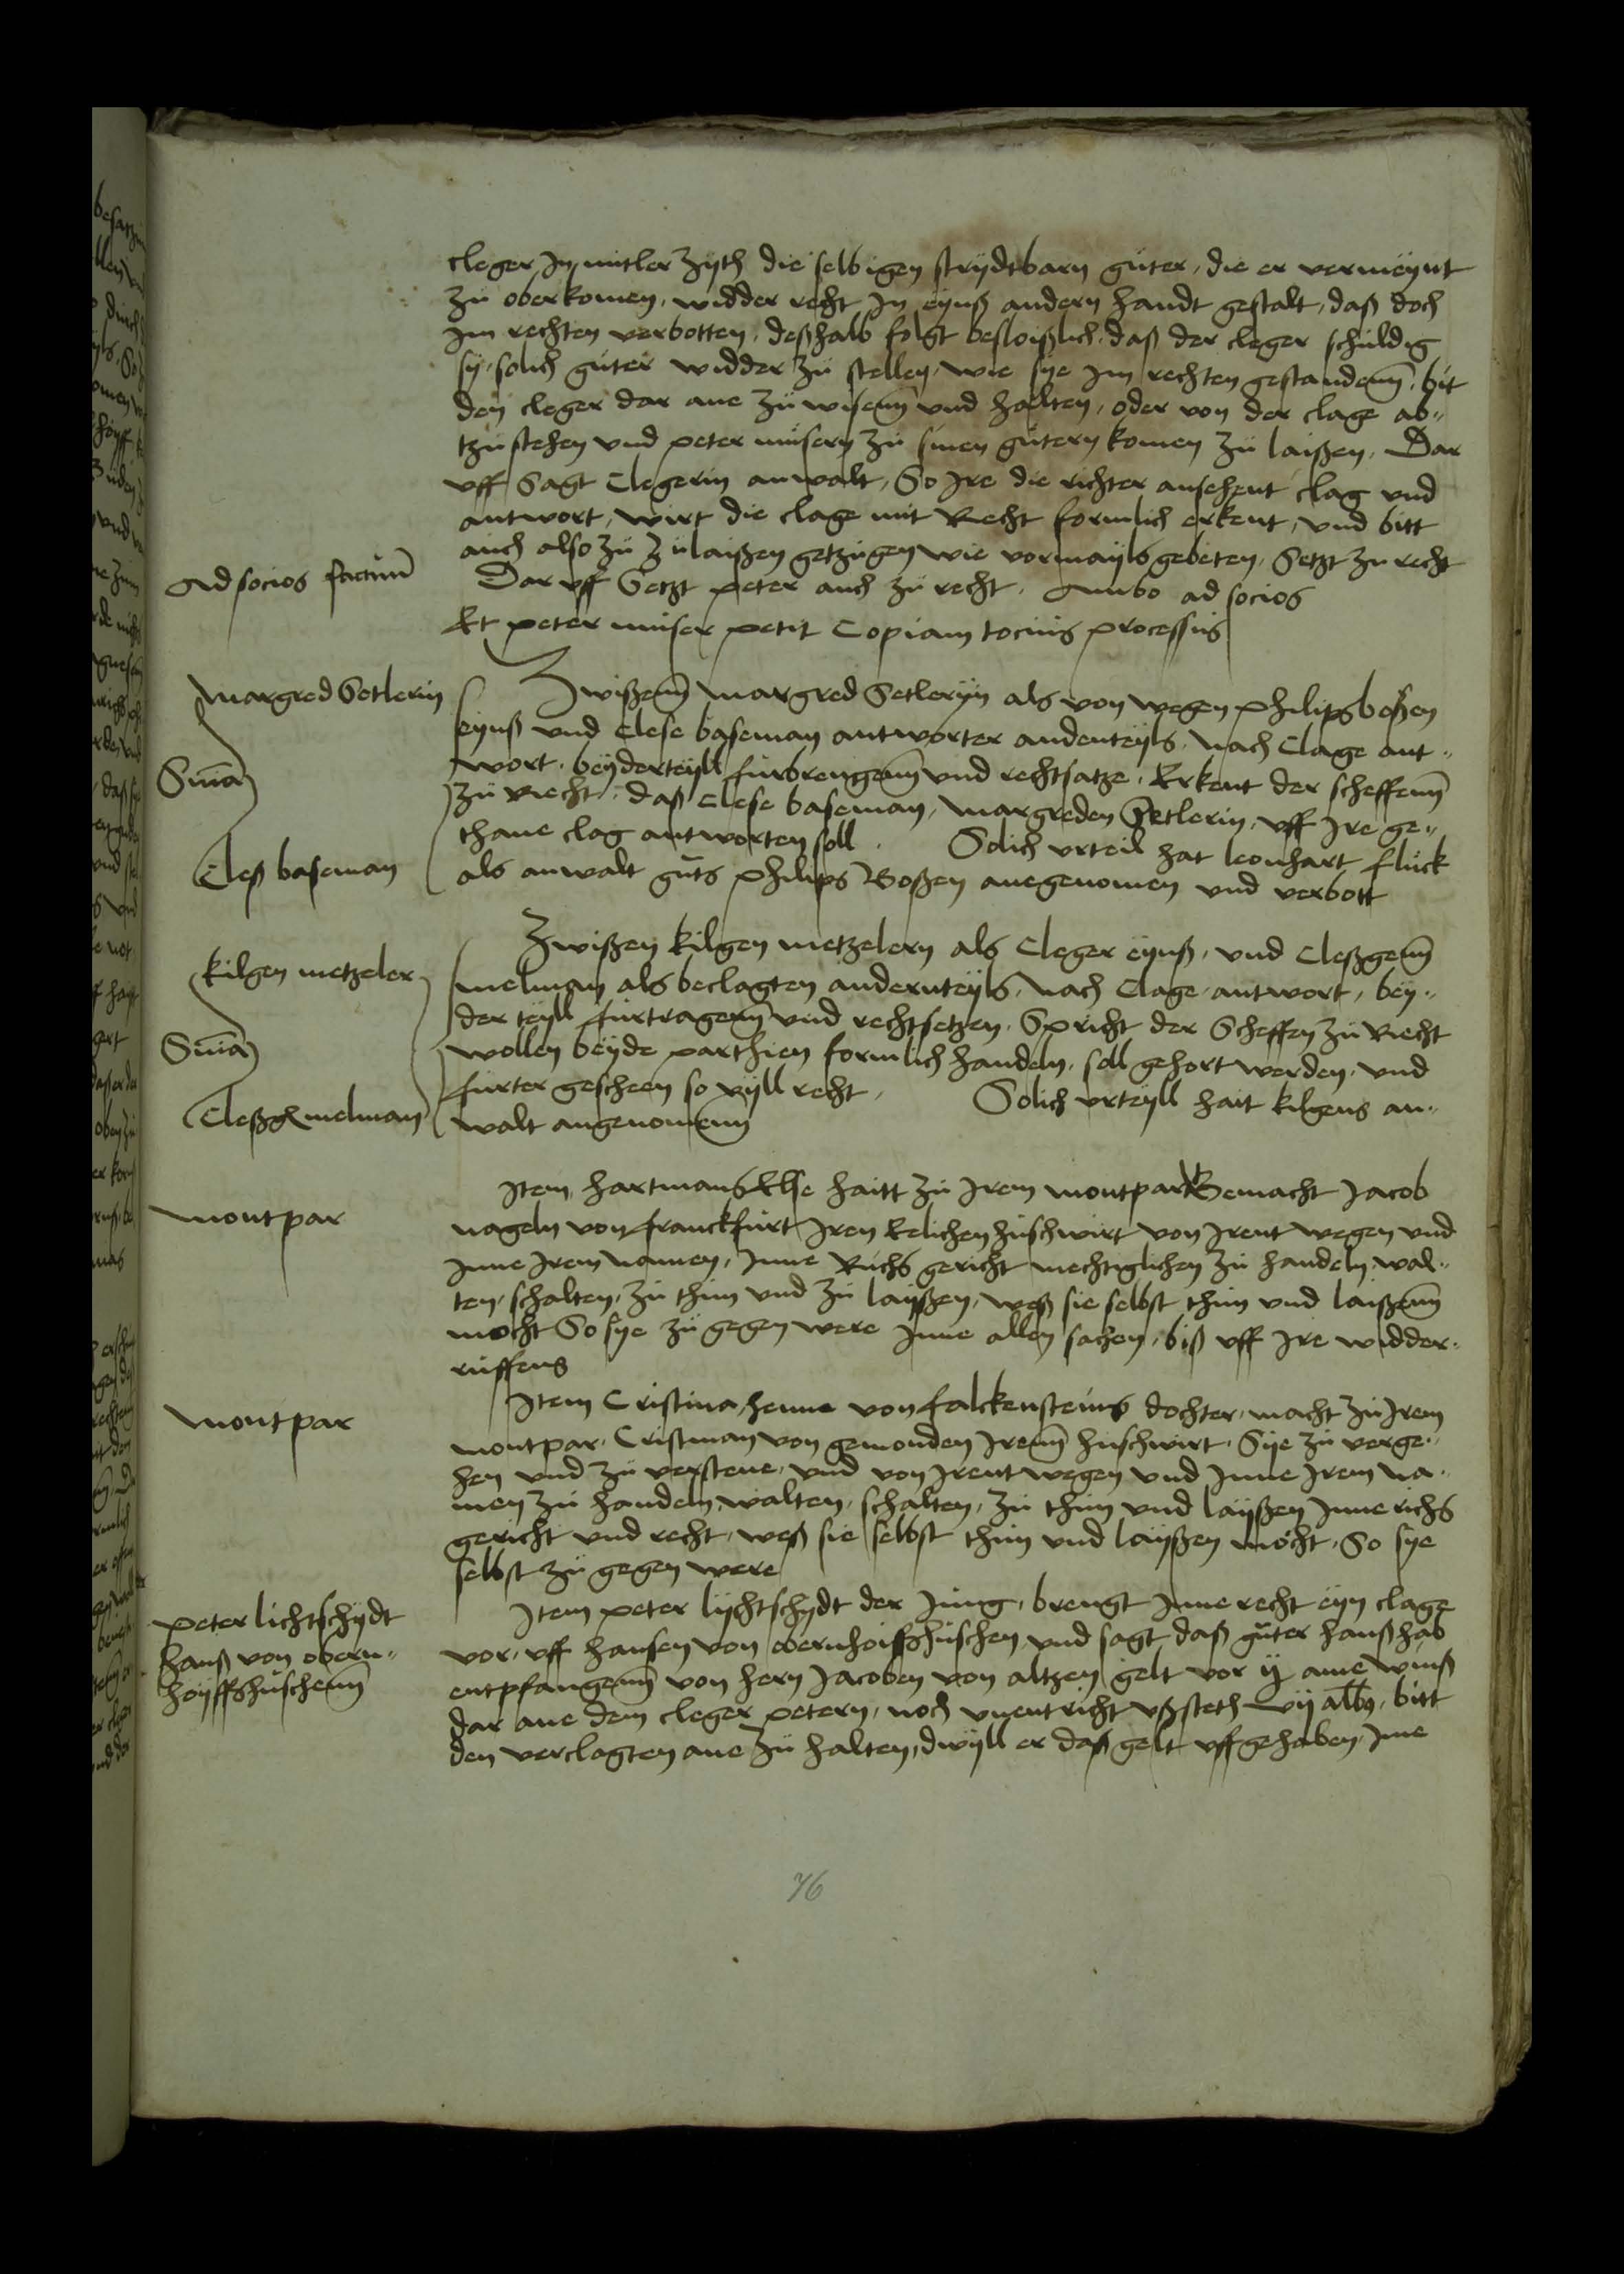 cleger In mitler zyth die selbigen strydtbarn guter, die er vermeynt
zu oberkomen, widder recht In eynß andern handt gestalt, daß doch
Im rechten verbotten, deßhalb folgt besloißlich, daß der cleger schuldig
sy, solich guter widder zu stellen, wie sye Im rechten gestandenn, bit
den cleger dar ane zu wisenn und halten, oder von der clage ab„
tzustehen und peter musern zu sinen gutern komen zu laißen, Dar
uff Sagt Clegerin anwalt, So Ire die richter ansehent clag und
antwort, wirt die clage mit Recht formlich erkent, und bitt
auch also zu zulaißen getzugen wie vormayls gebeten, Setzt zu recht
Ad socios factum
Dar uff Setzt peter auch zu recht. Ambo ad socios
Et peter muser petit Copiam tocius processus
Margred Setlerin
Sma
Cleß baseman
Zwißenn Margred Setleryn als von wegen philips boßen
eynß und Clese baseman antworter anderteyls, Nach Clage ant„
wort, beyderteyll furbrengenn und rechtsatze, Erkent der scheffenn
zu Recht, daß Clese baseman, Margreden Setlerin, uff Ire ge„
thane clag antworten soll. Solich urteil hat leonhart fluck
als anwalt guts philips Boßen anegenomen und verbott
Kilgen metzeler
Sma
Cleßgenn melman
Zwißen kilgen metzelern als Cleger eynß, und Cleßgenn
melman als beclagten andernteyls, Nach Clage, antwort, bey„
der teyll furtragenn und rechtsetzen, Spricht der Scheffen zu Recht
wollen beyde parthien formlich handeln, soll gehort werden, und
furter gescheen so vyll recht. Solich urteyll hait kilgens an„
walt angenomenn
Montpar
Item hartmans Else haitt zu Irem montpar Gemacht Jacob
nageln von franckfurt Iren Eelichen huschwirt von Irent wegen und
Inne Irem namen, Inne Richs gericht mechtiglichen zu handeln, wal„
ten, schalten, zu thun und zu layßen, weß sie selbst thun und laißenn
mocht So sye zu gegen were Inne allen sachen, biß uff Ire widder„
ruffens
Montpar
Item Cristina, henne von falckensteins dochter, macht zu Irem
montpar, Cristman von gemonden Irenn huschwirt, Sye zu verge„
hen und zu verstene, und von Irent wegen und Inne Irem na„
men zu handeln, walten, schalten, zu thun und layßen Inne richs
gericht und recht, weß sie selbst thun und layßen mocht, So sye
selbst zu gegen were
Peter lichtschydt
hanß von obern„
hoyffshuschenn
Item peter lychtschydt der Jung, brengt Inne recht eyn clage
vor, uff hansen von obernhoiffshuschen und sagt daß guter hanß hab
entpfangenn von hern Jacoben von altzen gelt vor ij ame wins
dar ane dem cleger petern, noch unentricht ußsteth vij albs, bitt
den verclagten ane zu halten, dwyll er daß gelt uffgehaben, Ime
76